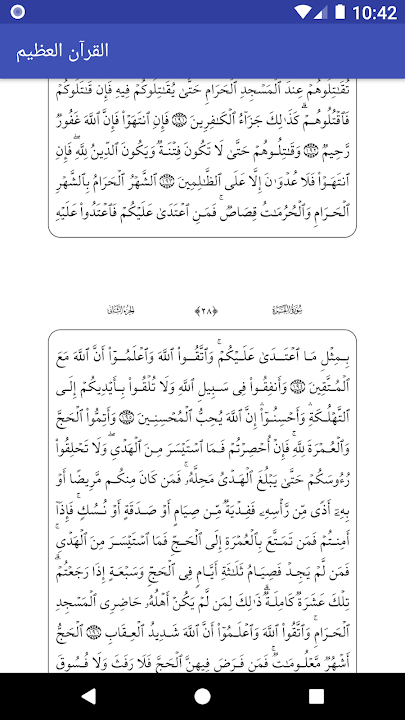 10:42
القرآن العظيم
تُقَٰتِلُوهُمْ عِندَ ٱلْمَسْجِدِ ٱلْحَرَامِ حَتَّىٰ يُقَٰتِلُوكُمْ فِيهِ فَإِن قَٰتَلُوكُمْ
فَٱقْتُلُوهُمْ ۗ كَذَٰلِكَ جَزَآءُ ٱلْكَٰفِرِينَ ۝١٩١ فَإِنِ ٱنتَهَوْا۟ فَإِنَّ ٱللَّهَ غَفُورٌ
رَّحِيمٌ ۝١٩٢ وَقَٰتِلُوهُمْ حَتَّىٰ لَا تَكُونَ فِتْنَةٌ وَيَكُونَ ٱلدِّينُ لِلَّهِ ۖ فَإِنِ
ٱنتَهَوْا۟ فَلَا عُدْوَٰنَ إِلَّا عَلَى ٱلظَّٰلِمِينَ ۝١٩٣ ٱلشَّهْرُ ٱلْحَرَامُ بِٱلشَّهْرِ
ٱلْحَرَامِ وَٱلْحُرُمَٰتُ قِصَاصٌ ۚ فَمَنِ ٱعْتَدَىٰ عَلَيْكُمْ فَٱعْتَدُوا۟ عَلَيْهِ
سُورَةُ البَقَرَةِ ﴿٢٨﴾ الجزء الثاني
بِمِثْلِ مَا ٱعْتَدَىٰ عَلَيْكُمْ ۚ وَٱتَّقُوا۟ ٱللَّهَ وَٱعْلَمُوٓا۟ أَنَّ ٱللَّهَ مَعَ
ٱلْمُتَّقِينَ ۝١٩٤ وَأَنفِقُوا۟ فِى سَبِيلِ ٱللَّهِ وَلَا تُلْقُوا۟ بِأَيْدِيكُمْ إِلَى
ٱلتَّهْلُكَةِ ۛ وَأَحْسِنُوٓا۟ ۛ إِنَّ ٱللَّهَ يُحِبُّ ٱلْمُحْسِنِينَ ۝١٩٥ وَأَتِمُّوا۟ ٱلْحَجَّ
وَٱلْعُمْرَةَ لِلَّهِ ۚ فَإِنْ أُحْصِرْتُمْ فَمَا ٱسْتَيْسَرَ مِنَ ٱلْهَدْىِ ۖ وَلَا تَحْلِقُوا۟
رُءُوسَكُمْ حَتَّىٰ يَبْلُغَ ٱلْهَدْىُ مَحِلَّهُۥ ۚ فَمَن كَانَ مِنكُم مَّرِيضًا أَوْ
بِهِۦٓ أَذًى مِّن رَّأْسِهِۦ فَفِدْيَةٌ مِّن صِيَامٍ أَوْ صَدَقَةٍ أَوْ نُسُكٍ ۚ فَإِذَآ
أَمِنتُمْ فَمَن تَمَتَّعَ بِٱلْعُمْرَةِ إِلَى ٱلْحَجِّ فَمَا ٱسْتَيْسَرَ مِنَ ٱلْهَدْىِ ۚ
فَمَن لَّمْ يَجِدْ فَصِيَامُ ثَلَٰثَةِ أَيَّامٍ فِى ٱلْحَجِّ وَسَبْعَةٍ إِذَا رَجَعْتُمْ ۗ
تِلْكَ عَشَرَةٌ كَامِلَةٌ ۗ ذَٰلِكَ لِمَن لَّمْ يَكُنْ أَهْلُهُۥ حَاضِرِى ٱلْمَسْجِدِ
ٱلْحَرَامِ ۚ وَٱتَّقُوا۟ ٱللَّهَ وَٱعْلَمُوٓا۟ أَنَّ ٱللَّهَ شَدِيدُ ٱلْعِقَابِ ۝١٩٦ ٱلْحَجُّ
أَشْهُرٌ مَّعْلُومَٰتٌ ۚ فَمَن فَرَضَ فِيهِنَّ ٱلْحَجَّ فَلَا رَفَثَ وَلَا فُسُوقَ